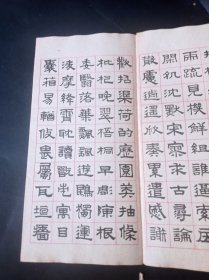 兩疏見機解組誰逼索居
閒處沉默寂寥求古尋論
散慮逍遙欣奏累遣慼謝
歡招渠荷的歷園莽抽條
枇杷晚翠梧桐早凋陳根
委翳落葉飄颻遊鵾獨運
凌摩絳霄耽讀翫市寓目
囊箱易輶攸畏屬耳垣牆